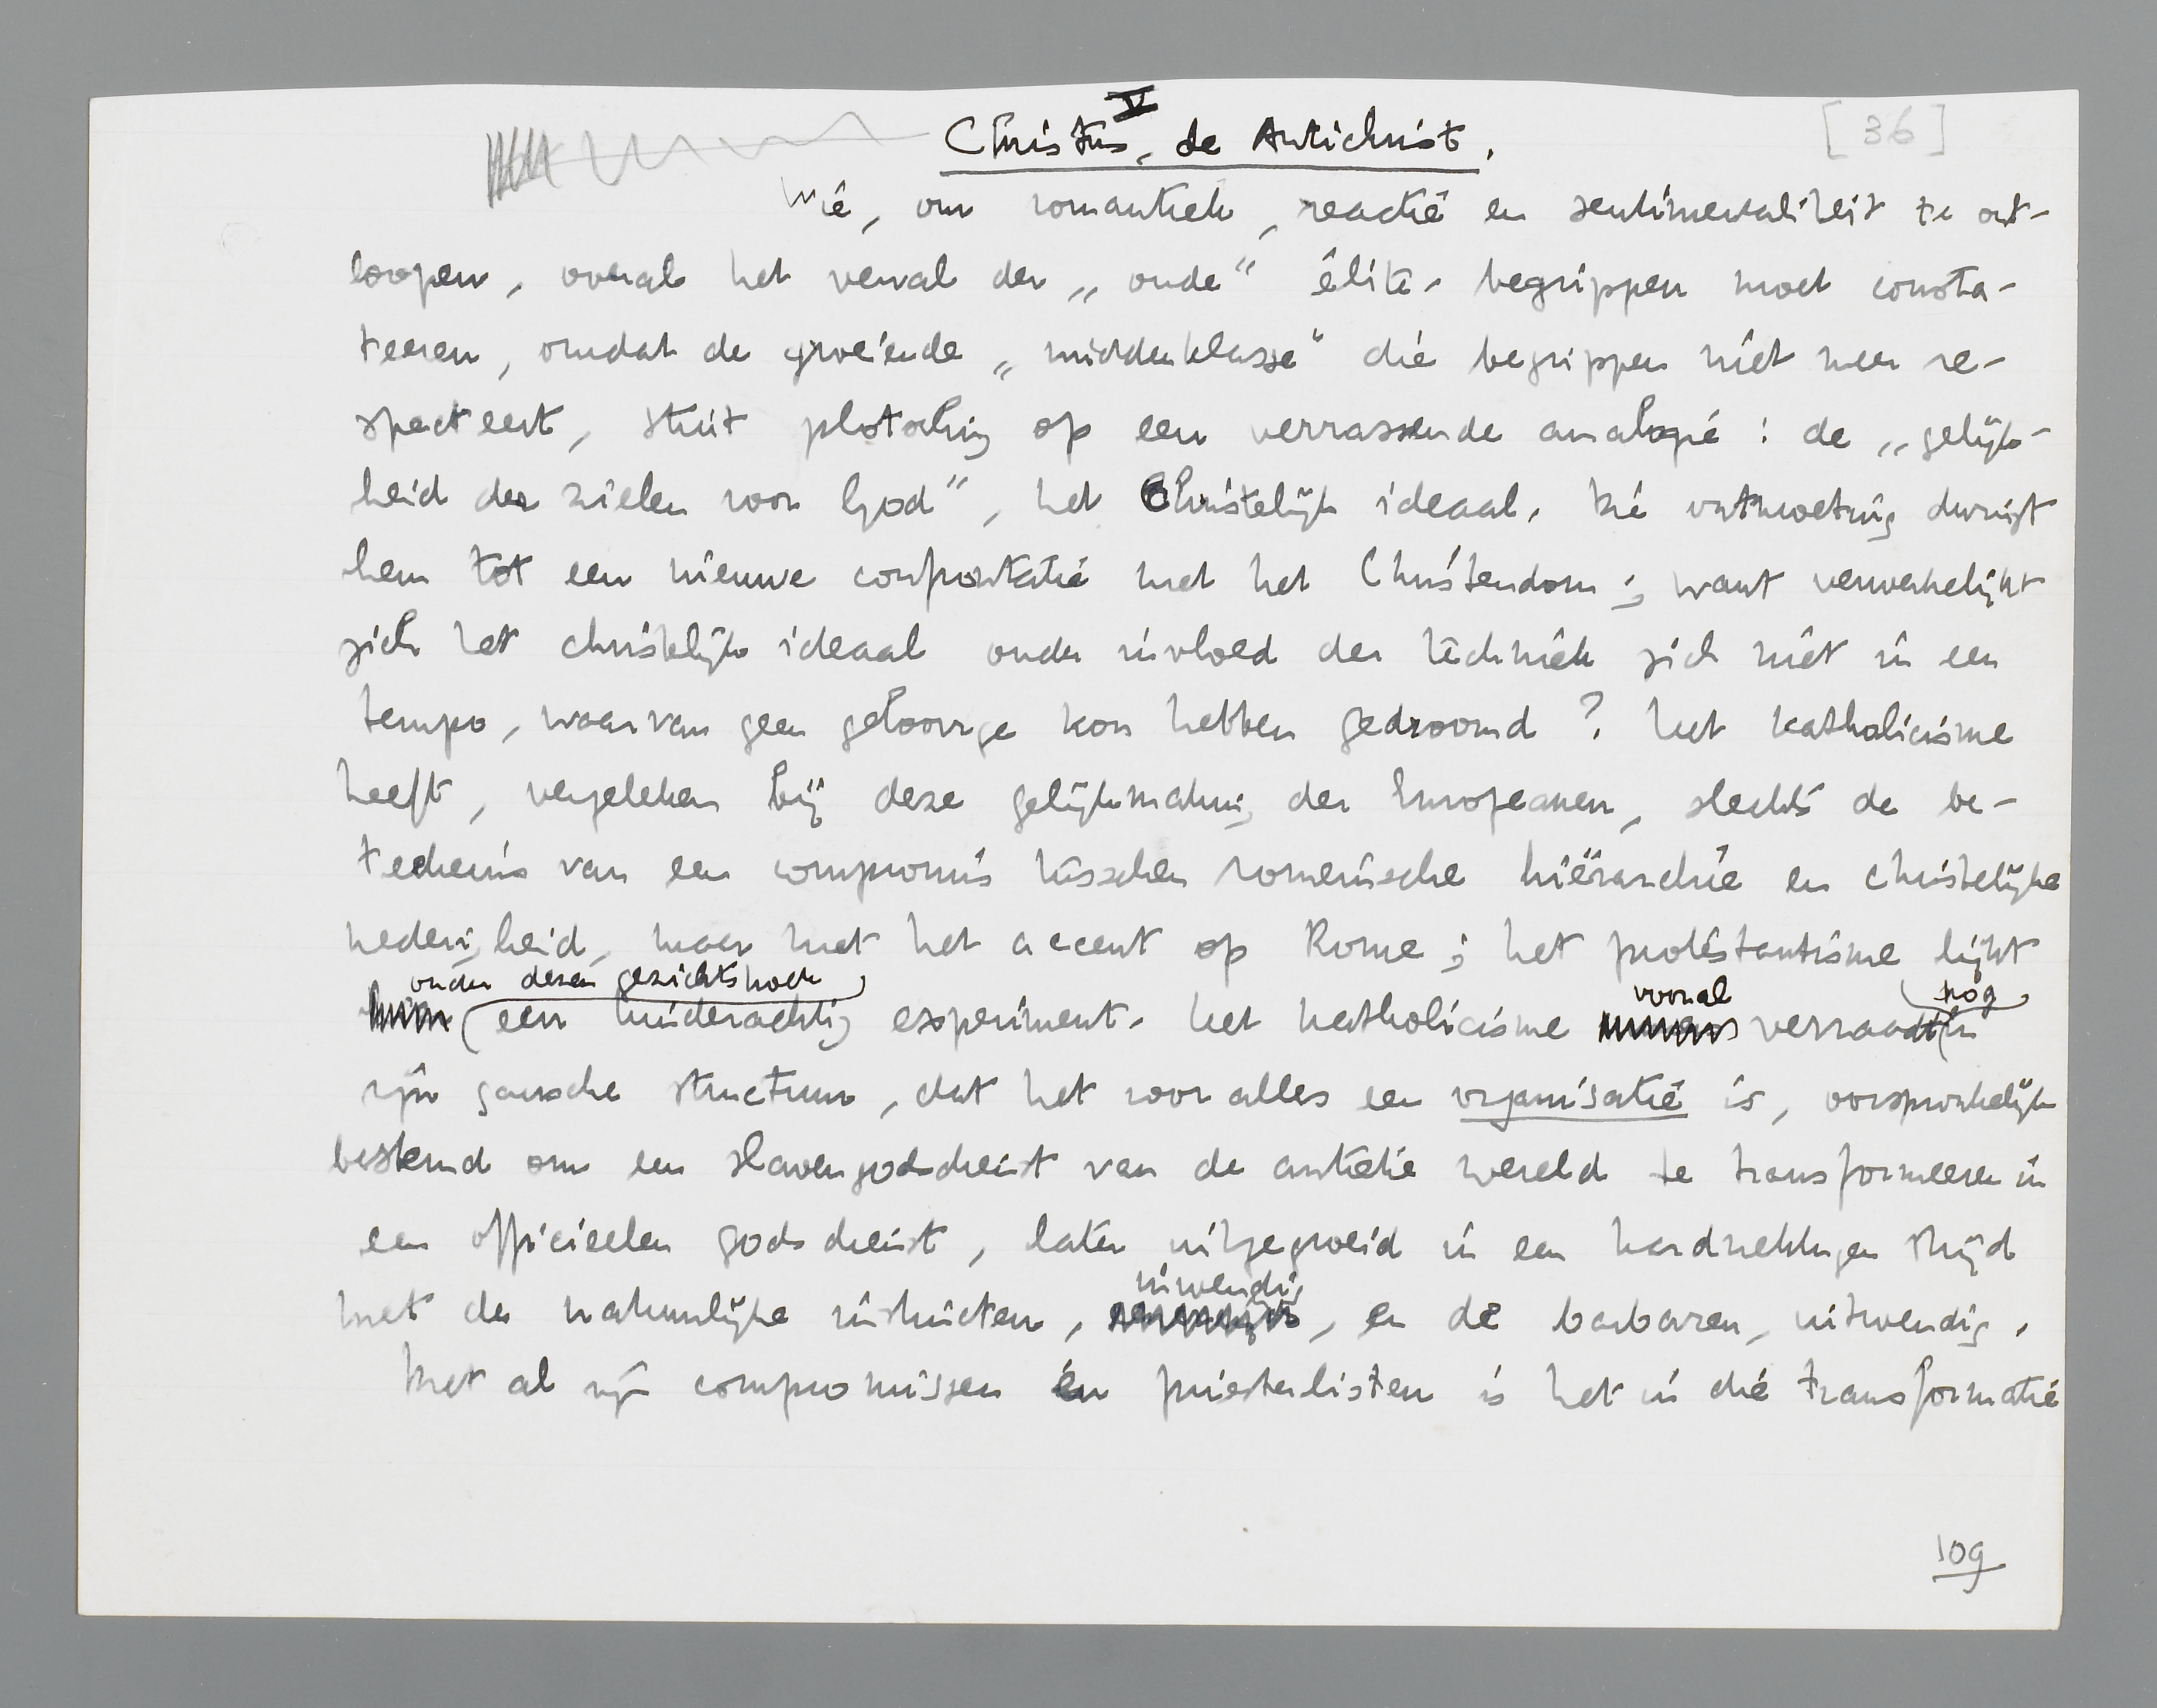 V
Christus, de Antichrist.
[36]
Wie, om romantiek, reactie en sentimentaliteit te ont-
loopen, overal het verval der „oude” élite-begrippen moet consta-
teeren, omdat de groeiende „middenklasse” die begrippen niet meer re-
specteert, stuit plotseling op een verrassende analogie: de „gelijk-
heid der zielen voor God”, het Christelijk ideaal. Die ontmoeting dwingt
hem tot een nieuwe confrontatie met het Christendom; want verwerkelijkt
zich het christelijk ideaal onder invloed der techniek zich niet in een
tempo, waarvan geen geloovige kon hebben gedroomd? Het katholicisme
heeft, vergeleken bij deze gelijkmaking der Europeanen, slechts de be-
teekenis van een compromis tusschen romeinsche hiërarchie en christelijke
nederigheid, maar met het accent op Rome; het protestantisme lijkt
onder dezen gezichtshoek
een kinderachtig experiment. Het katholicisme vooral verraadt nog in
zijn gansche structuur, dat het voor alles een organisatie is, oorspronkelijk
bestemd om een slavengodsdienst van de antieke wereld te transformeeren in
een officieelen godsdienst, later uitgegroeid in een hardnekkigen strijd
met de natuurlijke instincten, inwendig, en de barbaren, uitwendig.
Met al zijn compromissen en priesterlisten is het in die transformatie
109